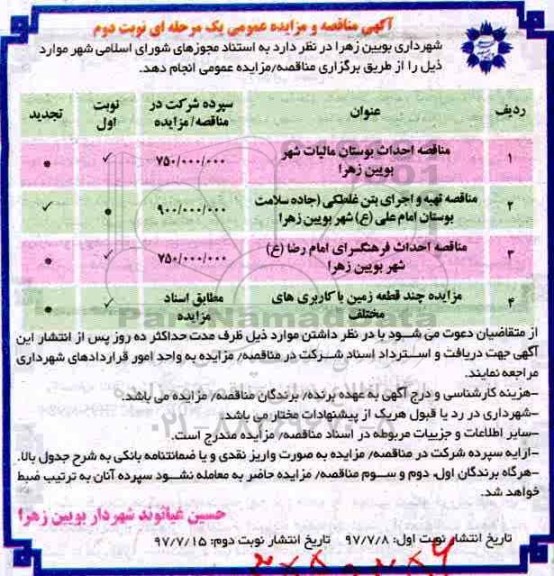 آگهی مناقصه و مزایده عمومی یک مرحله ای نوبت دوم
شهرداری بویین زهرا در نظر دارد به استناد مجوزهای شورای اسلامی شهر موارد
ذیل را از طریق برگزاری مناقصه/مزایده عمومی انجام دهد.
ردیف عنوان سپرده شرکت در مناقصه/مزایده نوبت اول تجدید
۱ مناقصه احداث بوستان مالیات شهر بویین زهرا ۷۵۰/۰۰۰/۰۰۰ ✓ •
۲ مناقصه تهیه و اجرای بتن غلطکی (جاده سلامت بوستان امام علی (ع) شهر بویین زهرا ۹۰۰/۰۰۰/۰۰۰ • ✓
۳ مناقصه احداث فرهنگسرای امام رضا (ع) شهر بویین زهرا ۷۵۰/۰۰۰/۰۰۰ ✓ •
۴ مزایده چند قطعه زمین با کاربری های مختلف مطابق اسناد مزایده ✓ •
از متقاضیان دعوت می شود با در نظر داشتن موارد ذیل ظرف مدت حداکثر ده روز پس از انتشار این
آگهی جهت دریافت و استرداد اسناد شرکت در مناقصه/ مزایده به واحد امور قراردادهای شهرداری
مراجعه نمایند.
-هزینه کارشناسی و درج آگهی به عهده برنده/ برندگان مناقصه/ مزایده می باشد.
-شهرداری در رد یا قبول هریک از پیشنهادات مختار می باشد.
-سایر اطلاعات و جزییات مربوطه در اسناد مناقصه/ مزایده مندرج است.
-ارایه سپرده شرکت در مناقصه/ مزایده به صورت واریز نقدی و یا ضمانتنامه بانکی به شرح جدول بالا.
-هرگاه برندگان اول، دوم و سوم مناقصه/ مزایده حاضر به معامله نشود سپرده آنان به ترتیب ضبط
خواهد شد.
حسین غیاثوند شهردار بویین زهرا
تاریخ انتشار نوبت اول: ۹۷/۷/۸ تاریخ انتشار نوبت دوم: ۹۷/۷/۱۵
ParsNamadData
۰۲۱-۸۸۳۴۹۶۷۰-۵